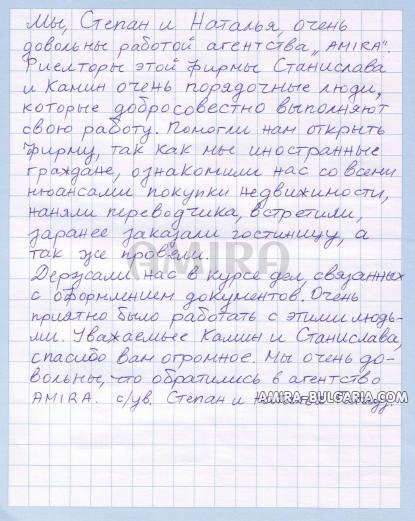 Мы, Степан и Наталья, очень
довольны работой агентства „AMIRA".
Риелторы этой фирмы Станислава
и Камин очень порядочные люди,
которые добросовестно выполняют
свою работу. Помогли нам открыть
фирму, так как мы иностранные
граждане, ознакомили нас со всеми
нюансами покупки недвижимости,
наняли переводчика, встретили,
заранее заказали гостиницу, а
так же провели.
AMIRA
Держали нас в курсе дел, связанных
с оформлением документов. Очень
приятно было работать с этими людь-
ми. Уважаемые Камин и Станислава,
спасибо вам огромное. Мы очень до-
вольны, что обратились в агентство
AMIRA. с/ув. Степан и
AMIRA-BULGARIA.COM